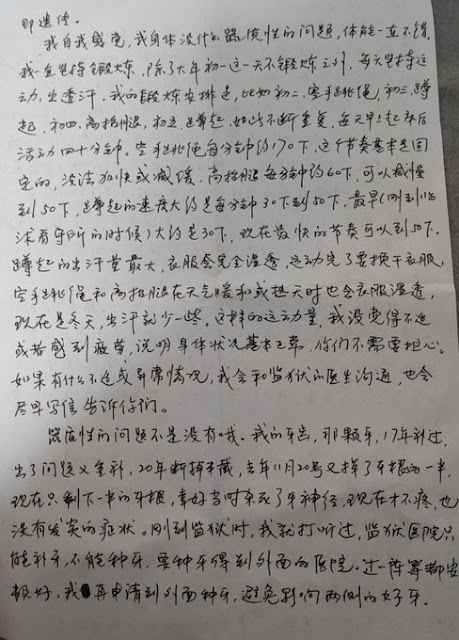 即遗传。
我自我感觉，我身体没什么器质性的问题，体能一直不错，
我一直坚持锻炼，除了大年初一这一天不锻炼之外，每天坚持运
动，出透汗。我的锻炼安排是，比如初二，空手跳绳，初三，蹲
起，初四，高抬腿，初五，蹲起，如此不断重复，每天早上起来后
活动四十分钟。空手跳绳每分钟约170下，这个节奏基本是固
定的，没法加快或减缓，高抬腿每分钟约60下，可以减慢
到50下，蹲起的速度大约是每分钟30下到50下，最早（刚到临
沭看守所的时候）大约是30下，现在最快的节奏可以到50下。
蹲起的出汗量最大，衣服会完全湿透，运动完了要换干衣服，
空手跳绳和高抬腿在天气暖和或热天时也会衣服湿透，
现在是冬天，出汗就少一些。这样的运动量，我没觉得不适
或者感到疲劳，说明身体状况基本正常，你们不需要担心。
如果有什么不适或异常情况，我会和监狱的医生沟通，也会
尽早写信告诉你们。
器质性的问题不是没有哦。我的牙齿，那颗牙，17年补过，
出了问题又重补，20年断掉半截，去年11月20号又掉了牙根的一半，
现在只剩下一半的牙根，幸好当时杀死了牙神经，现在才不疼，也
没有发炎的症状。刚到监狱时，我就打听过，监狱医院只
能补牙，不能种牙，要种牙得到外面的医院。过一阵等都安
顿好，我再申请到外面种牙，避免影响两侧的好牙。